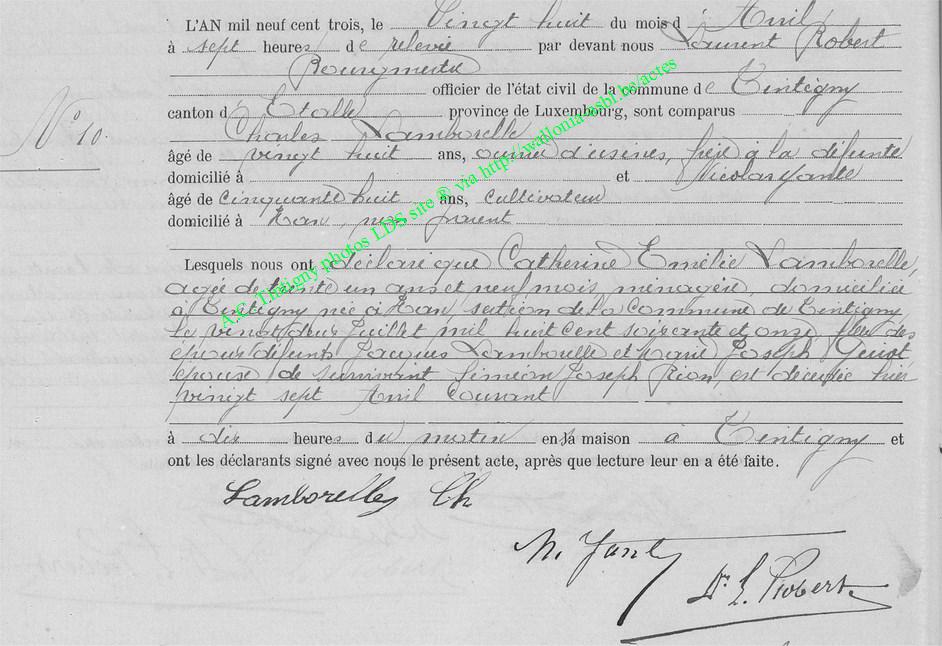 L'AN mil neuf cent trois, le Vingt huit du mois d'Avril
à sept heures de relevée par devant nous Laurent Robert
Bourgmestre
officier de l'état civil de la commune de Tintigny
canton d'Etalle province de Luxembourg, sont comparus
N° 10.
Charles Lamborelle
âgé de vingt huit ans, ouvrier d'usines, frère à la défunte
domicilié à et Nicolas Yante
âgé de cinquante huit ans, cultivateur
domicilié à Han, non parent
Lesquels nous ont déclaré que Catherine Emélie Lamborelle,
agée de trente un ans et neuf mois ménagère, domiciliée
à Tintigny née à Han, section de la commune de Tintigny
le vingt deux Juillet mil huit cent soixante et onze, fille des
époux défunts Jacques Lamborelle et Marie Joseph
épouse de survivant Siméon Joseph Rion, est décédée hier
vingt sept Avril courant
à dix heures du matin en sa maison à Tintigny et
ont les déclarants signé avec nous le présent acte, après que lecture leur en a été faite.
Lamborelle Ch
N. Yante
Dr L. Robert
A.C. Tintigny photos LDS site ® via http://wallonia-asbl.be/actes